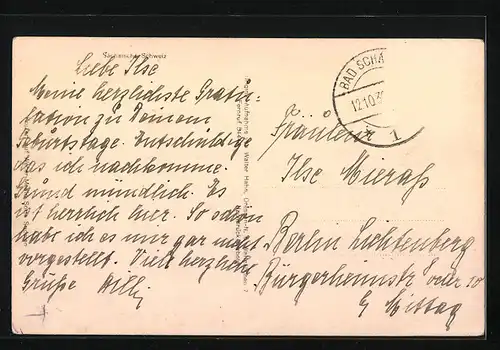 Sächsische Schweiz
Liebe Ilse
Meine herzlichste Gratu-
lation zu Deinem
Geburtstage. Entschuldige
das ich nachkomme.
Grund mündlich. Es
ist herrlich hier. So schön
habe ich es mir gar nicht
vorgestellt. Viele herzliche
Grüße Willi
BAD SCHA
12.10.3
1
Fräulein
Ilse Mieraß
Berlin Lichtenberg
Bürgerheimstr 8 oder 10
b/ Mittag
Walter Hahn,